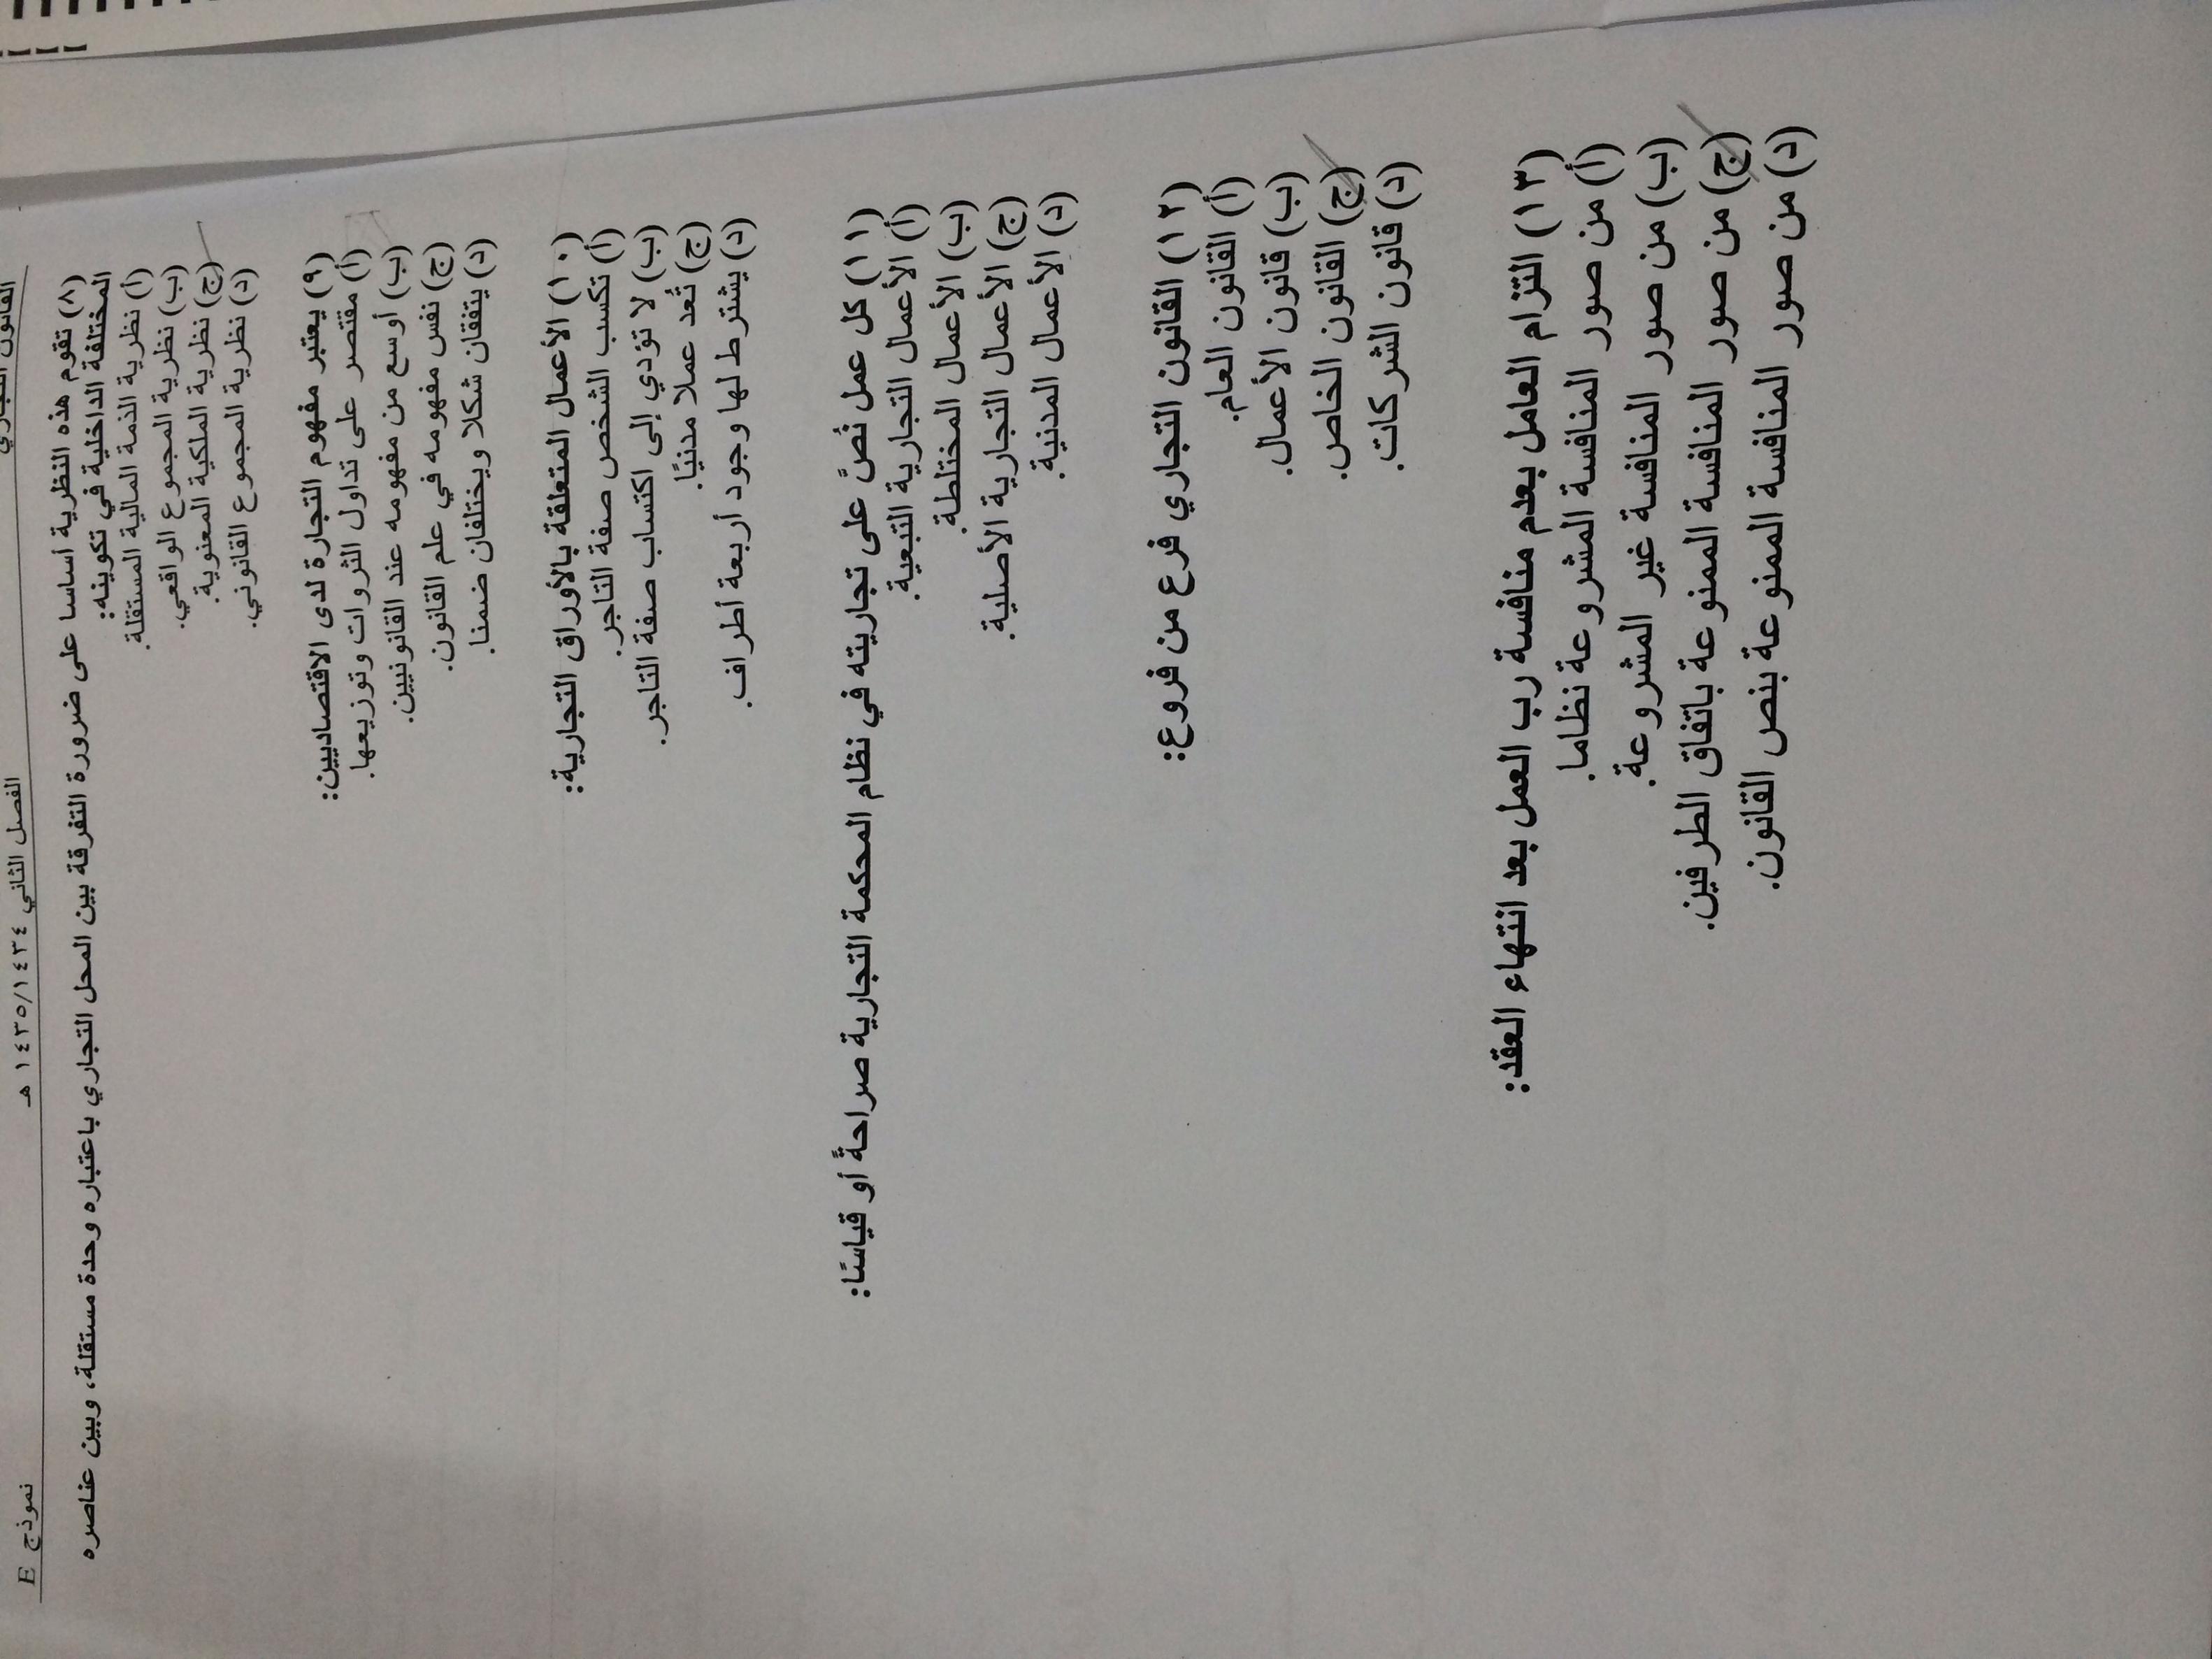 القانون التجاري الفصل الثاني ١٤٣٥/١٤٣٤ هـ نموذج E
(٨) تقوم هذه النظرية أساسا على ضرورة التفرقة بين المحل التجاري باعتباره وحدة مستقلة، وبين عناصره
المختلفة الداخلية في تكوينه:
(أ) نظرية الذمة المالية المستقلة.
(ب) نظرية المجموع الواقعي.
(ج) نظرية الملكية المعنوية.
(د) نظرية المجموع القانوني.
(٩) يعتبر مفهوم التجارة لدى الاقتصاديين:
(أ) مقتصر على تداول الثروات وتوزيعها.
(ب) أوسع من مفهومه عند القانونيين.
(ج) نفس مفهومه في علم القانون.
(د) يتفقان شكلا ويختلفان ضمنا.
(١٠) الأعمال المتعلقة بالأوراق التجارية:
(أ) تكسب الشخص صفة التاجر.
(ب) لا تؤدي إلى اكتساب صفة التاجر.
(ج) تُعد عملا مدنيًا.
(د) يشترط لها وجود أربعة أطراف.
(١١) كل عمل نُصَّ على تجاريته في نظام المحكمة التجارية صراحةً أو قياسًا:
(أ) الأعمال التجارية التبعية.
(ب) الأعمال المختلطة.
(ج) الأعمال التجارية الأصلية.
(د) الأعمال المدنية.
(١٢) القانون التجاري فرع من فروع:
(أ) القانون العام.
(ب) قانون الأعمال.
(ج) القانون الخاص.
(د) قانون الشركات.
(١٣) التزام العامل بعدم منافسة رب العمل بعد انتهاء العقد:
(أ) من صور المنافسة المشروعة نظاما.
(ب) من صور المنافسة غير المشروعة.
(ج) من صور المنافسة الممنوعة باتفاق الطرفين.
(د) من صور المنافسة الممنوعة بنص القانون.